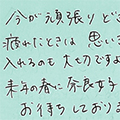 今が頑張りど
疲れたときは 思いき
入れるのも 大切ですよ
来年の春に 奈良女子
お待ちしており